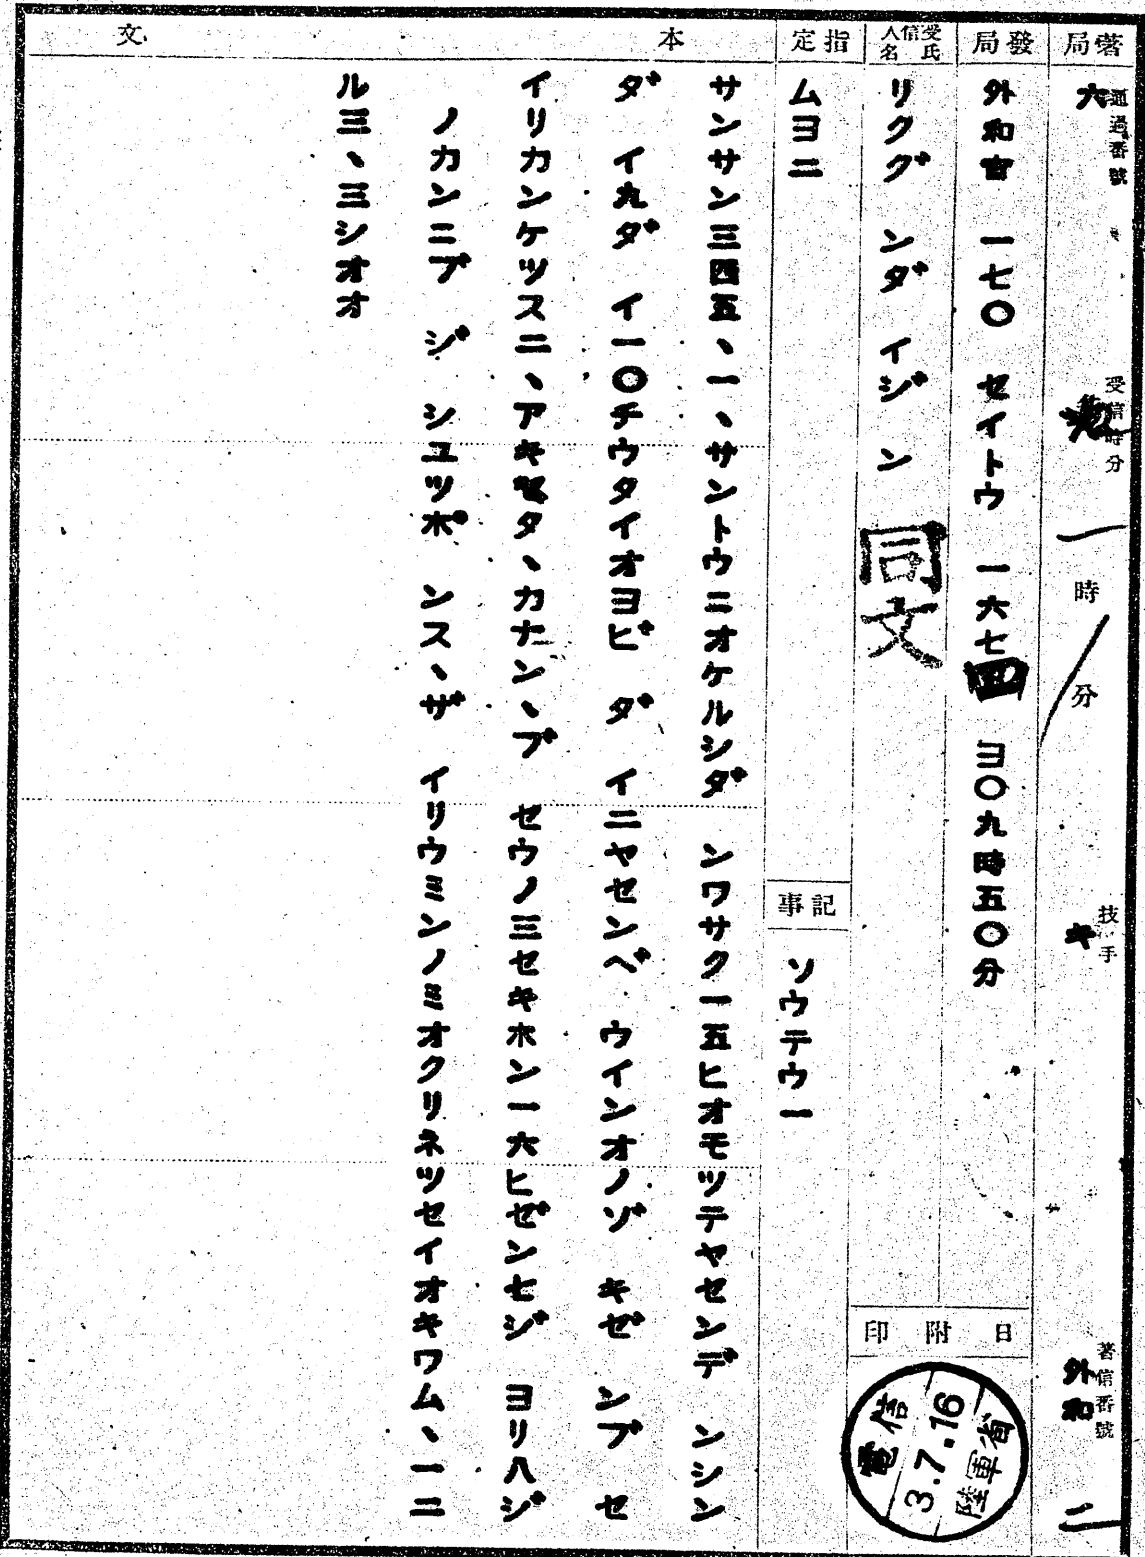 著局
六
通過番號
受信時分
時
分
技手
キ
著信番號
外和
二
發局
外和官 一七〇 セイトウ 一六七 ヨ〇九時五〇分
受信人氏名
リクグンダイジン
同文
日附印
電信
3.7.16
陸軍省
指定
ムヨニ
記事
ソウテウ一
本文
サンサン三四五、一、サントウニオケルシダンワサク一五ヒオモツテヤセンデンシン
ダイ九ダイ一〇チウタイオヨビダイニヤセンベウインオノゾキゼンブセ
イリカンケツスニ、アキタ、カナン、ブセウノ三セキホン一六ヒゼン七ジヨリハジ
ノカンニブジシユツポンス、ザイリウミンノミオクリネツセイオキワム、一ニ
ル三、三シオオ